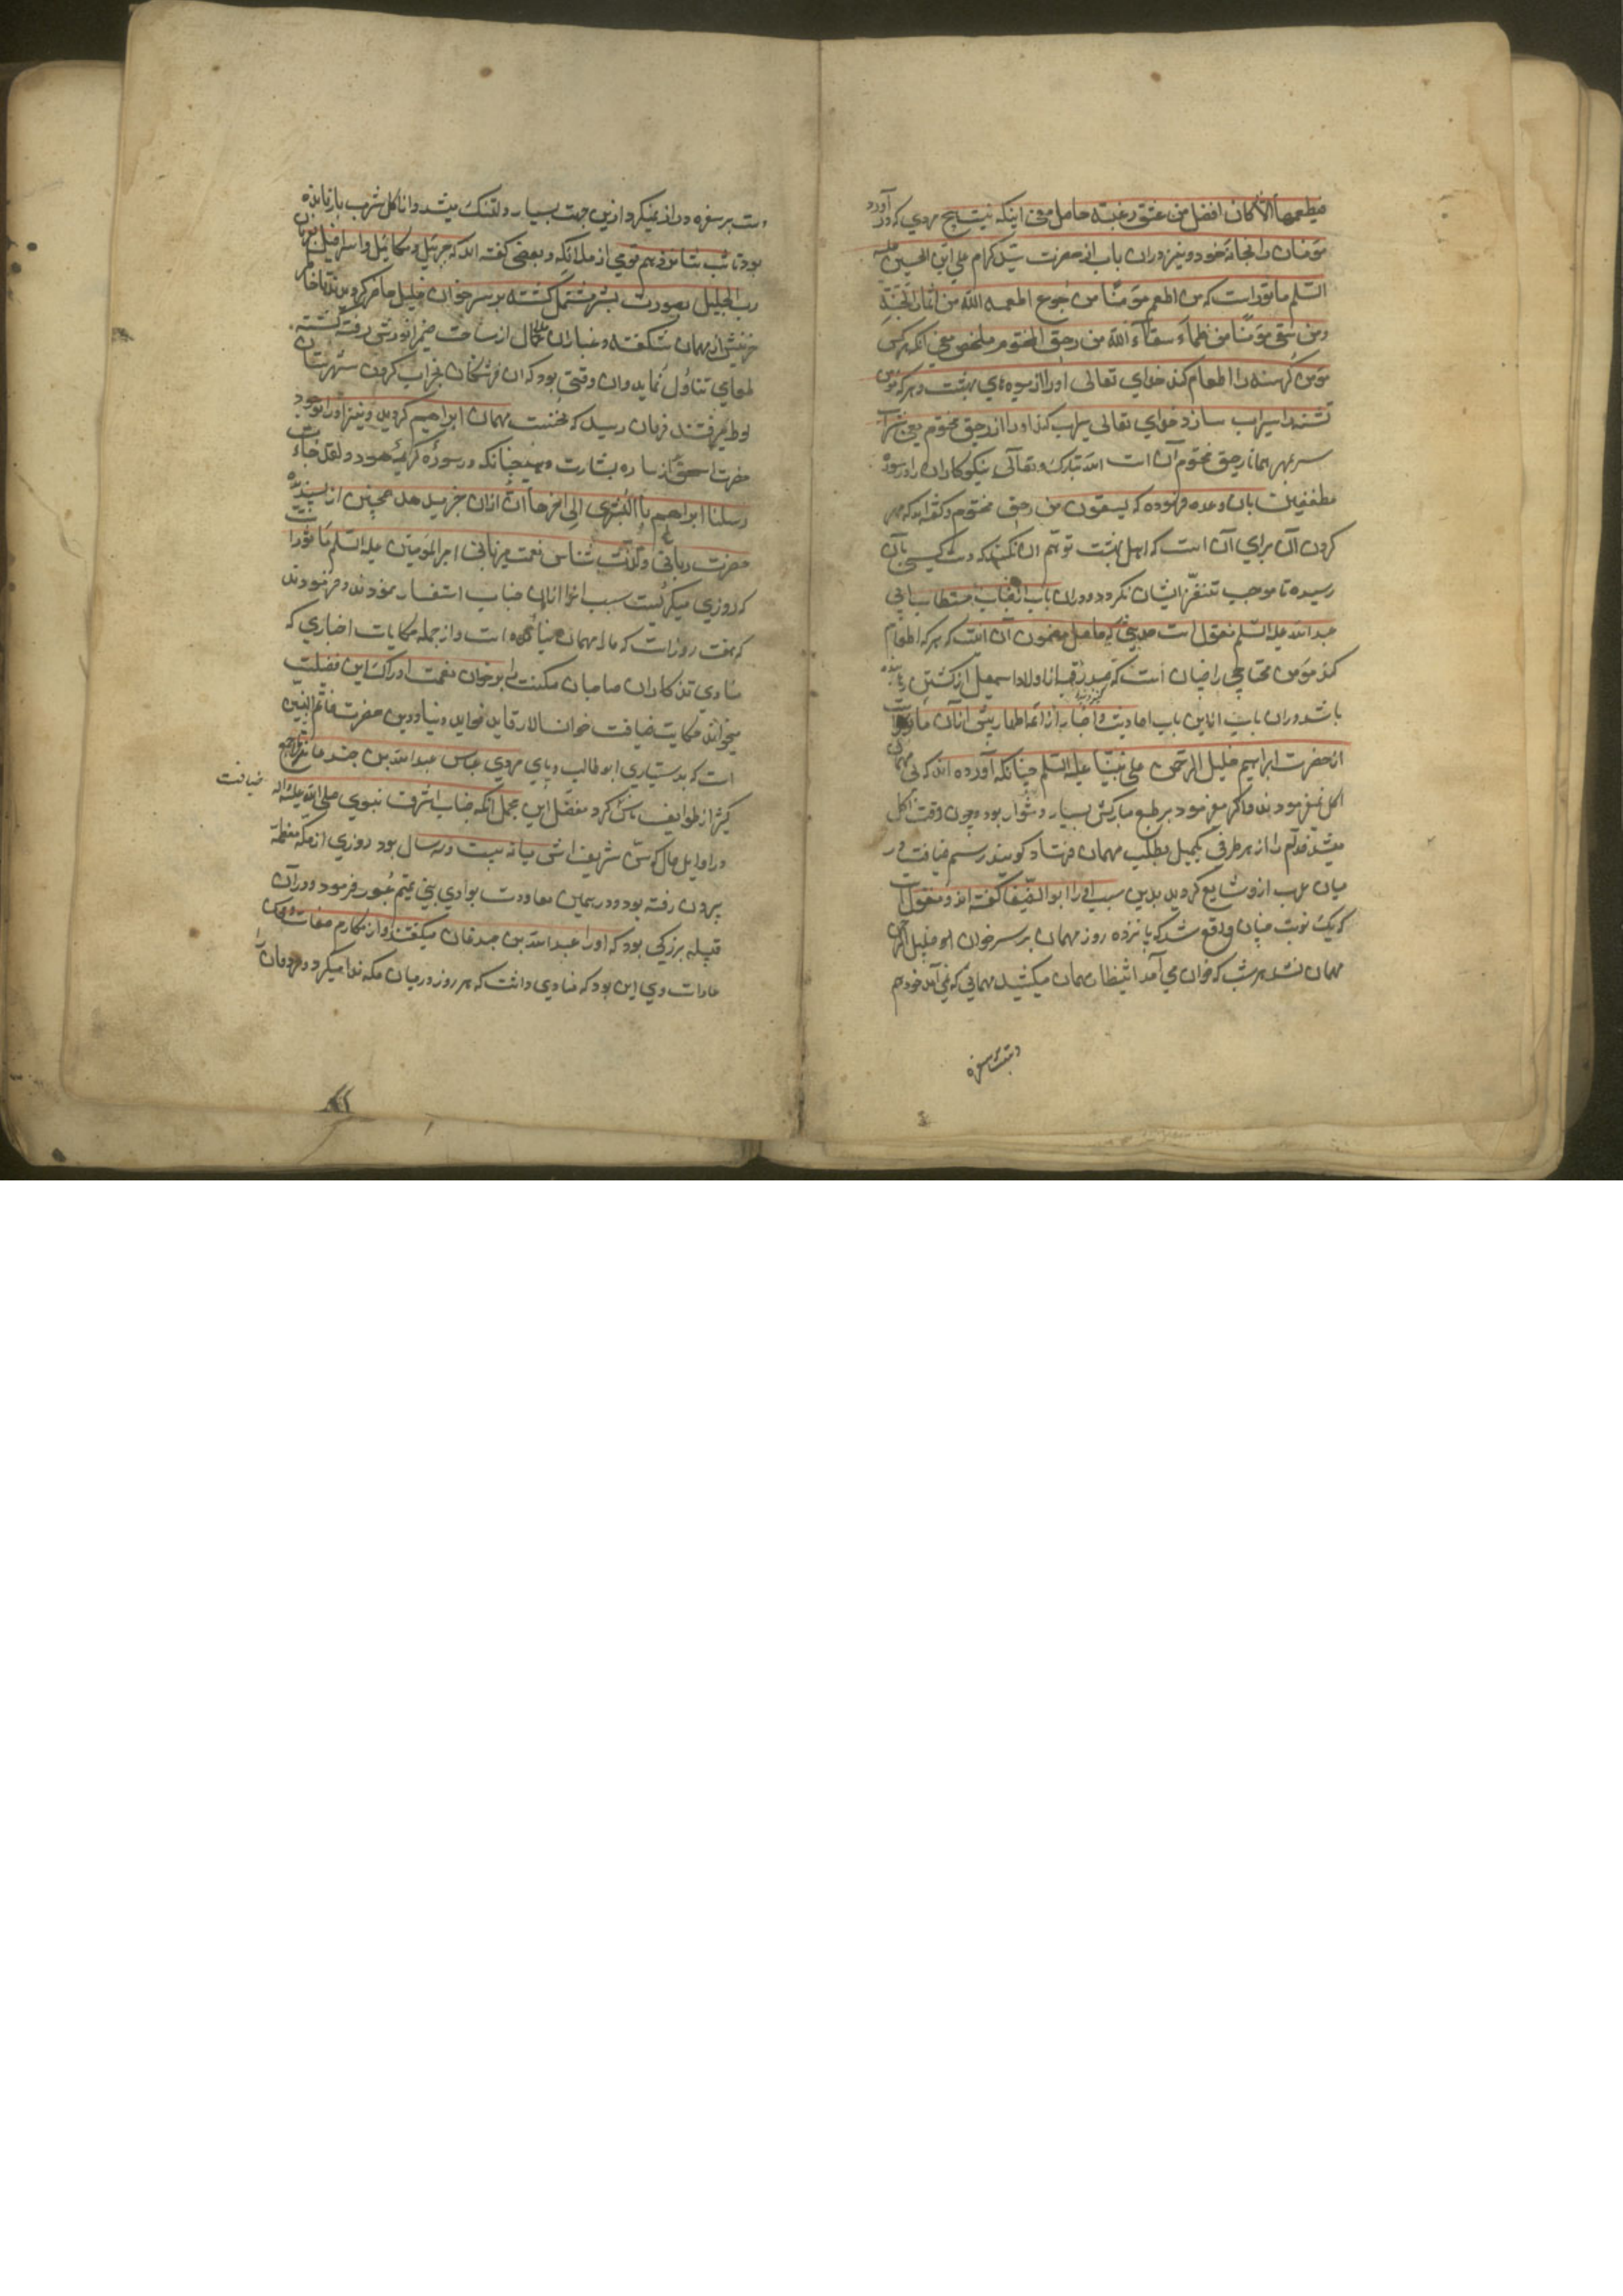 فیطعمهما الا کان افضل من عتق رغبة حاصل معنی اینکه نیست هیچ مردی که در آورد
مؤمنان را بخانهٔ خود و نیز در ان باب از حضرت سید کرام علی ابن الحسین علیه
السلم ماثور است که من اطعم مؤمنا من جوع اطعمه الله من اثمار الجنة
ومن سقی مؤمنا من ظماء سقاه الله من رحیق المختوم ملخص معنی آنکه هر کس
مؤمن کرسنه را اطعام کند خدای تعالی اورا از میوه های بهشت و هر که مؤمن
تشنه را سیراب سازد خدای تعالی سیراب کند اورا از رحیق مختوم یعنی شراب
سر بمهر همانا رحیق مختوم آن است الله تبارک و تعالی نیکوکاران را در سوره
مطففین بان وعده فرموده که یسقون من رحیق مختوم و گفته اند که مهر
کردن آن برای آن است که اهل بهشت توهم ان نکنند که دست کسی بان
رسیده تا موجب تنفر ایشان نکردد و در ان باب از جناب مستطاب ابی
عبد الله علیه السلم منقول است حدیثی که حاصل مضمون آن اینست که هر که اطعام
کند مؤمن محتاجی را چنان است که صد رقبه از اولاد اسمعیل از کشتن رهانیده
باشد و در ان باب از این باب احادیث و اخبار از ائمه اطهار بیش از آن ماثور است
از حضرت ابراهیم خلیل الرحمن علی نبینا علیه السلم چنانکه آورده اند که بی مهمان
اکل نمیفرمودند و اگر میفرمود بر طبع مبارکش بسیار دشوار بود و چون وقت اکل
میشد خدام را از هر طرفی بکمیل بطلب مهمان فرستاد کویند رسم ضیافت در
میان عرب ازو شایع کردید بدین سبب او را ابو الضیفا گفته اند و منقول است
که یک نوبت چنان واقع شد که پانزده روز مهمان بر سر خوان ان خلیل الرحمن
مهمان نشد هر شب که خوان می آمد انتظار مهمان میکشید مهمانی که نمی آمد خود هم
دست بر سفره
دست بر سفره دراز نمیکرد و ازین جهت بسیار دلتنک میشد و از اکل شرب باز مانده
بود تا شب شانزدهم قومی از ملائکه و بعضی گفته اند که جبرئیل و میکائیل و اسرافیل بفرمان
رب الجلیل بصورت بشر متمثل گشته بر سر خوان خلیل حاضر کردیدند تا خاطر
حزینش از مهمان شکفته و غبار ان ملال از ساحت ضمیر انورش رفته گشته
طعامی تناول نماید و ان وقتی بود که ان فرشتکان بخراب کردن شهرستان
لوط میرفتند فرمان رسید که نخست مهمان ابراهیم کردید و نیز اورا بوجود
حضرت اسحق از ساره بشارت دهید چنانکه در سورهٔ کریمهٔ هود و لقد جاءت
رسلنا ابراهیم بالبشری الی اخرها ان از ان خبر میدهد همچنین از پسندیده
حضرت ربانی و لذت شناس نعمت میزبانی امیر المؤمنین علیه السلم ماثور است
که روزی میکریست سبب انرا از ان جناب استفسار نمودند و فرمودند
که هفت روز است که ما را مهمان نیامده است و از جمله حکایات اخباری که
منادی تذکار ان صاحبان مکنت را بر خوان نعمت ادراک این فضیلت
میخواند حکایت ضیافت خوانسالار قاید فواید دنیا و دین حضرت خاتم النبیین
است که بدستیاری ابو طالب و پای مردی عباس عبد الله بن جدعان جمع
کثیر از طوایف ناس کرد مفصل این مجمل آنکه جناب اشرف نبوی صلی الله علیه و اله
ضیافت
در اوایل حال که سن شریف اش میانه بیست و سه سال بود روزی از مکهٔ معظمه
بیرون رفته بود و در حین معاودت بوادی بنی تمیم عبور فرمود و در آن
قبیله بزرکی بود که اورا عبد الله بن جدعان میگفتند و از مکارم صفات و
عادات وی این بود که منادی داشت که هر روز در میان مکه ندا میکرد و مردمان را